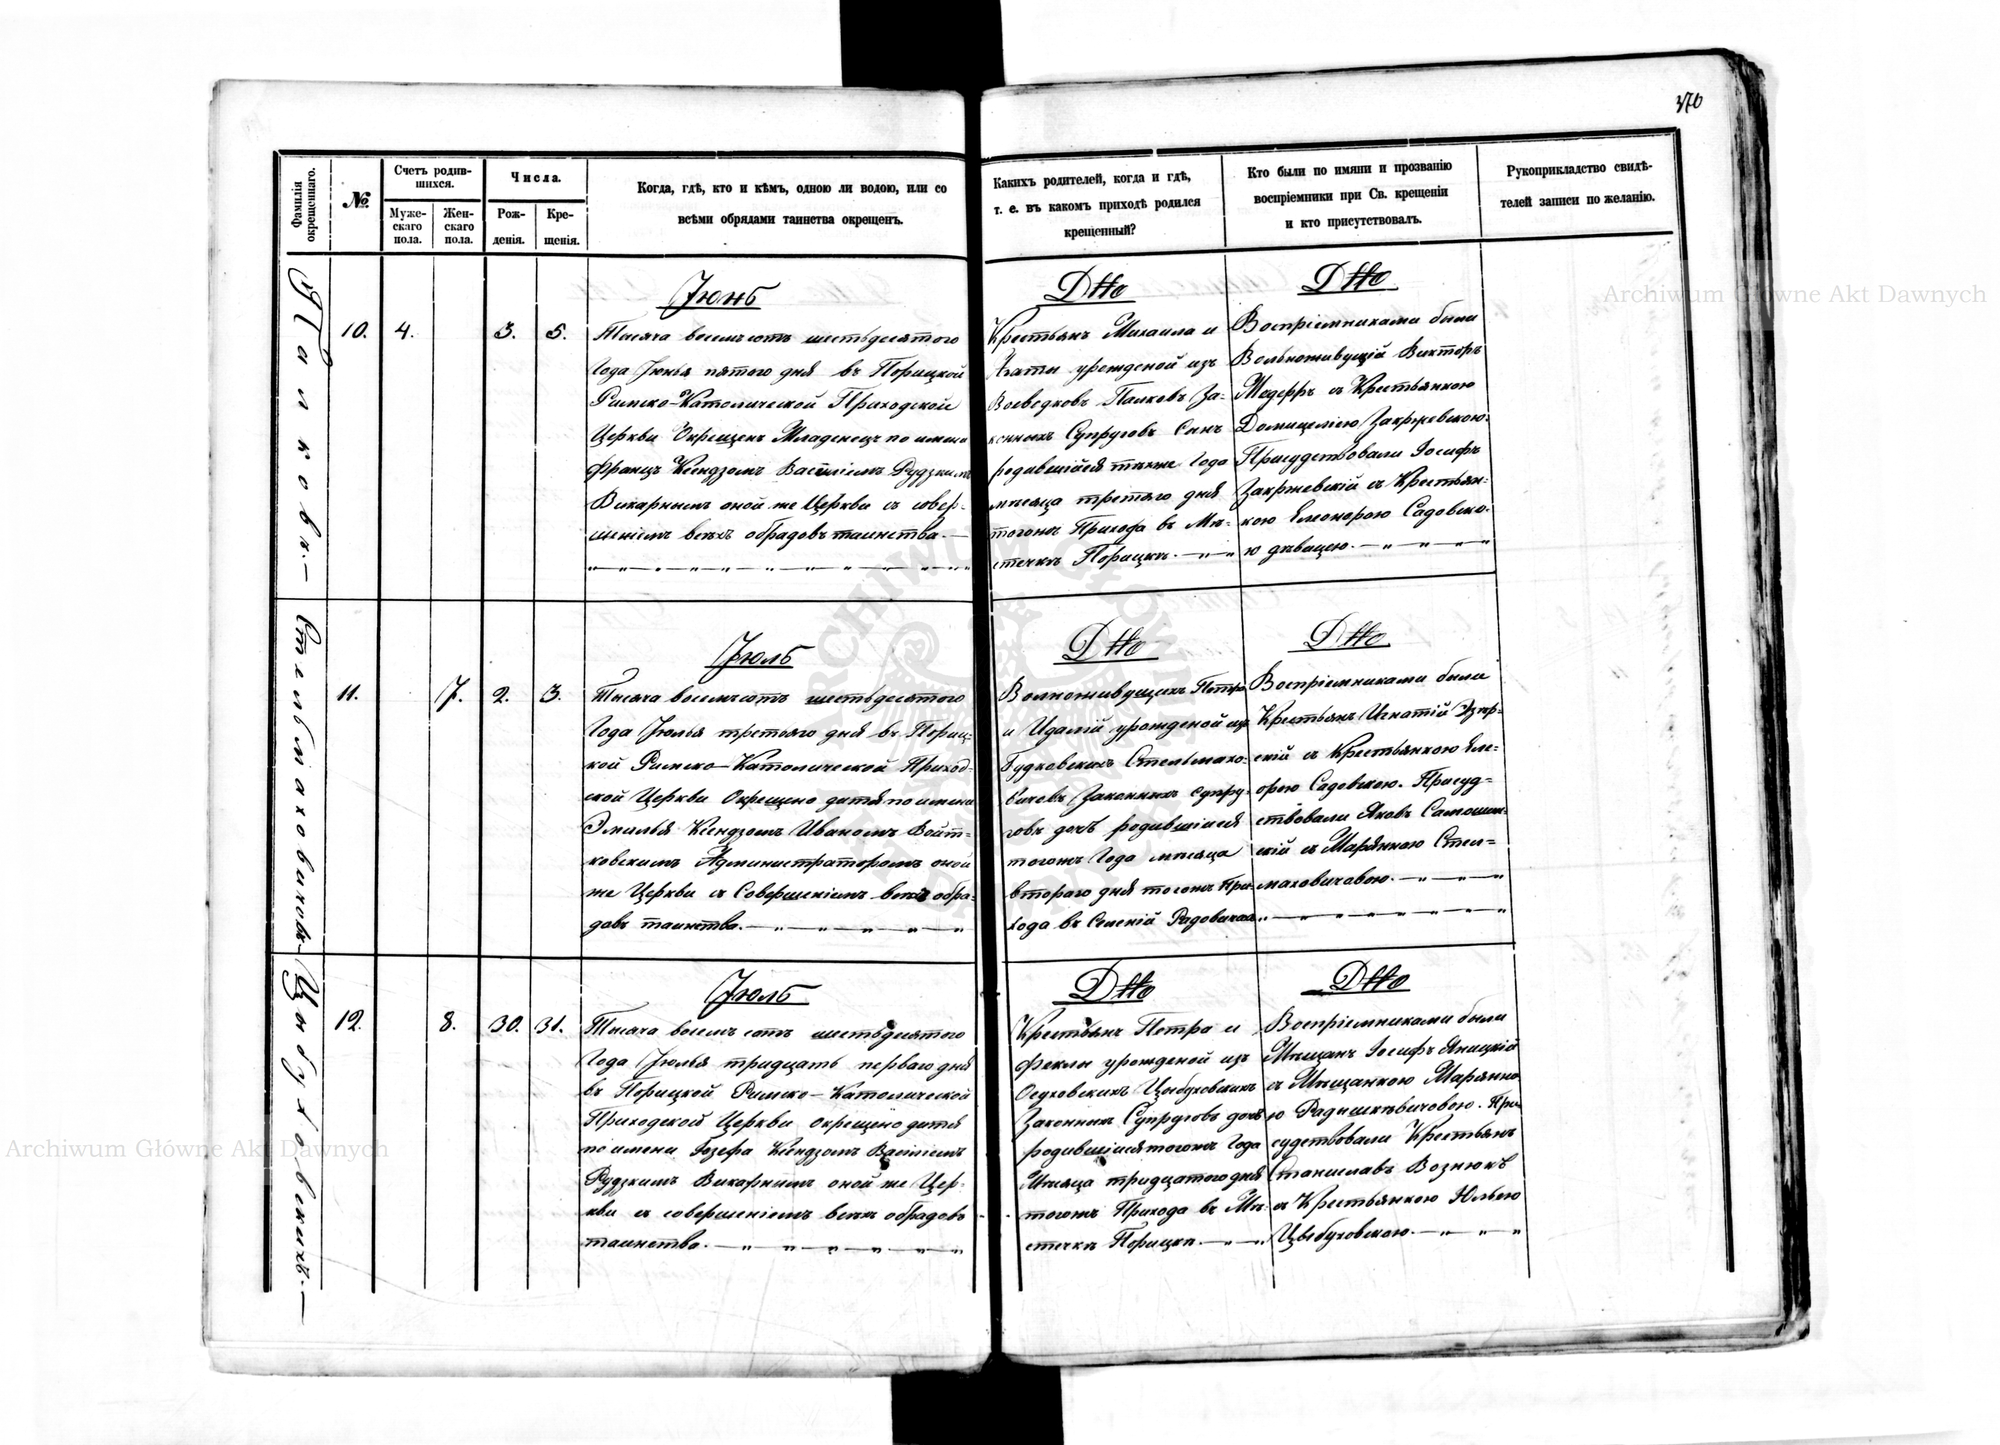 370
Фамилія окрещеннаго.
№
Счетъ родив-
шихся.
Муже-
скаго
пола.
Жен-
скаго
пола.
Числа.
Рож-
денія.
Кре-
щенія.
Когда, гдѣ, кто и кѣмъ, одною ли водою, или со
всѣми обрядами таинства окрещенъ.
Какихъ родителей, когда и гдѣ,
т. е. въ какомъ приходѣ родился
крещенный?
Кто были по имяни и прозванію
воспріемники при Св. крещеніи
и кто присутствовалъ.
Рукоприкладство свидѣ-
телей записи по желанію.
Палковъ.—
10.
4.
3.
5.
Іюнь
Тысяча восемъсотъ шестьдесятого
Года Іюнья пятого дня въ Порицкой
Римско-Католической Приходской
Церкви Окрещенъ Младенецъ по имени
Францъ Ксендзомъ Василіемъ Рудзкимъ
Викарнымъ оной же Церкви съ совер-
шеніемъ всѣхъ обрадовъ таинства.—
Dtto
Крестьянъ Михаила и
Агаты урожденой изъ
Воеводковъ Палковъ За-
конныхъ Супруговъ Сынъ
родившійся тогоже Года
мѣсяца третяго дня
тогожъ Прихода въ Мѣ-
стечкѣ Порицкѣ.
Dtto
Воспріемниками были
Вольноживущій Викторъ
Медеръ съ Крестьянкою
Домицеліею Закржевскою.
Присудствовали Іосифъ
Закржевскій съ Крестьян-
кою Елеонорою Садовско-
ю дѣвицею.
Стельмаховичовъ
11.
7.
2.
3.
Іюль
Тысяча восемъсотъ шестьдесятого
Года Іюлья третьяго дня въ Пориц-
кой Римско-Католической Приход-
ской Церкви Окрещено дитя по имени
Эмилья Ксендзомъ Иваномъ Войт-
ковскимъ Администраторомъ оной
же Церкви съ Совершеніемъ всѣхъ обра-
довъ таинства.
Dtto
Волноживущихъ Петра
и Идалій урожденой изъ
Будковскихъ Стельмахо-
вичовъ Законныхъ супру-
говъ дочь родившаяся
тогожъ Года мѣсяца
второго дня тогожъ При-
хода въ Селеній Радовичахъ.
Dtto
Воспріемниками были
Крестьянъ Игнатій
скій съ Крестьянкою Еле-
орою Садовскою. Присуд-
ствовали Яковъ
скій съ Маріянною Стел-
маховичовою.
Цыбуховскихъ.—
12.
8.
30.
31.
Іюль
Тысяча восемъ сотъ шестьдесятого
Года Іюлья тридцать первого дня
въ Порицкой Римско-Католической
Приходской Церкви окрещено дитя
по имени Іозефа Ксендзомъ Василіемъ
Рудзкимъ Викарнымъ оной же Цер-
кви съ совершеніемъ всѣхъ обрадовъ
таинства.
Dtto
Крестьянъ Петра и
Феклы урожденой изъ
Осуховскихъ Цыбуховскихъ
Законныхъ Супруговъ дочь
родившаяся тогожъ Года
Мѣсяца тридцатого дня
тогожъ Прихода въ Мѣ-
стечкѣ Порицкѣ.
Dtto
Воспріемниками были
Мѣщанъ Іосифъ Яницкій
съ Мѣщанкою Маріянно-
ю Радишкѣвичовою. При-
судствовали Крестьянъ
Станиславъ Вознюкъ
съ Крестьянкою Юльею
Цыбуховскою.
Archiwum Główne Akt Dawnych
Archiwum Główne Akt Dawnych